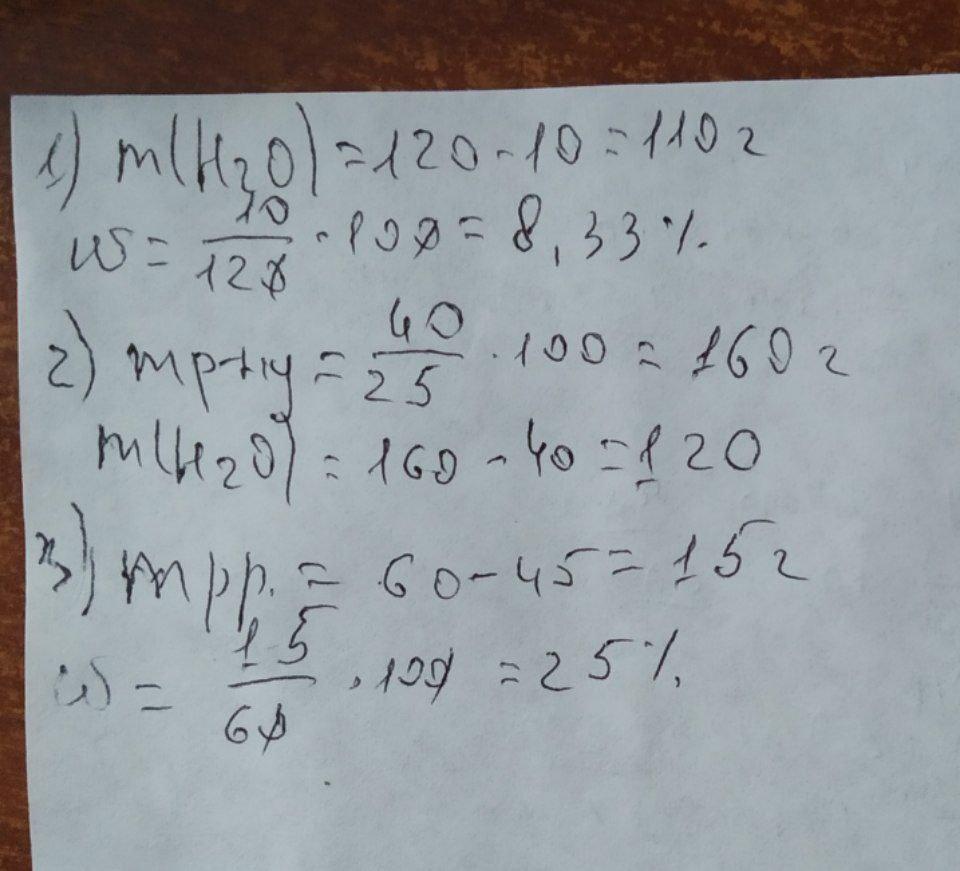 1) m(H2O) = 120 - 10 = 110 г
ω = 10/120 · 100 = 8,33 %.
2) m р-ну = 40/25 · 100 = 160 г
m(H2O) = 160 - 40 = 120
3) m рр. = 60 - 45 = 15 г
ω = 15/60 · 100 = 25 %.